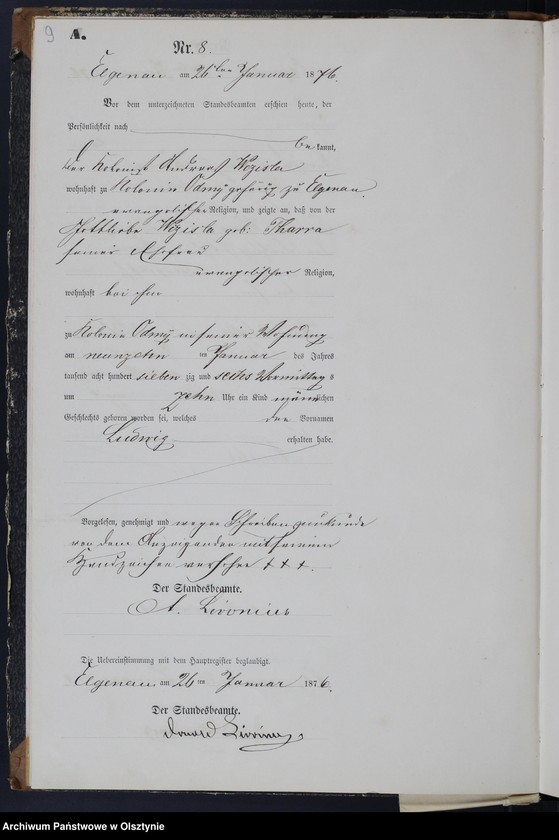 9 A.
Nr. 8.
Elgenau am 26ten Januar 1876.
Vor dem unterzeichneten Standesbeamten erschien heute, der
Persönlichkeit nach
be kannt,
der Kolonist Andreas
wohnhaft zu Kolonie gehörig zu Elgenau
evangelischer Religion, und zeigte an, daß von der
Gottliebe geb: Tharra
seiner Ehefrau
evangelischer Religion,
wohnhaft bei ihm
zu Kolonie in seiner Wohnung
am neunzehn ten Januar des Jahres
tausend acht hundert sieben zig und sechs Vormittags
um zehn Uhr ein Kind männlichen
Geschlechts geboren worden sei, welches den Vornamen
Ludwig erhalten habe.
Vorgelesen, genehmigt und wegen Schreibensunkunde
von dem Anzeigenden mit seinem
Handzeichen versehen + + +.
Der Standesbeamte.
A.
Die Uebereinstimmung mit dem Hauptregister beglaubigt.
Elgenau am 26ten Januar 1876.
Der Standesbeamte.
Archiwum Państwowe w Olsztynie